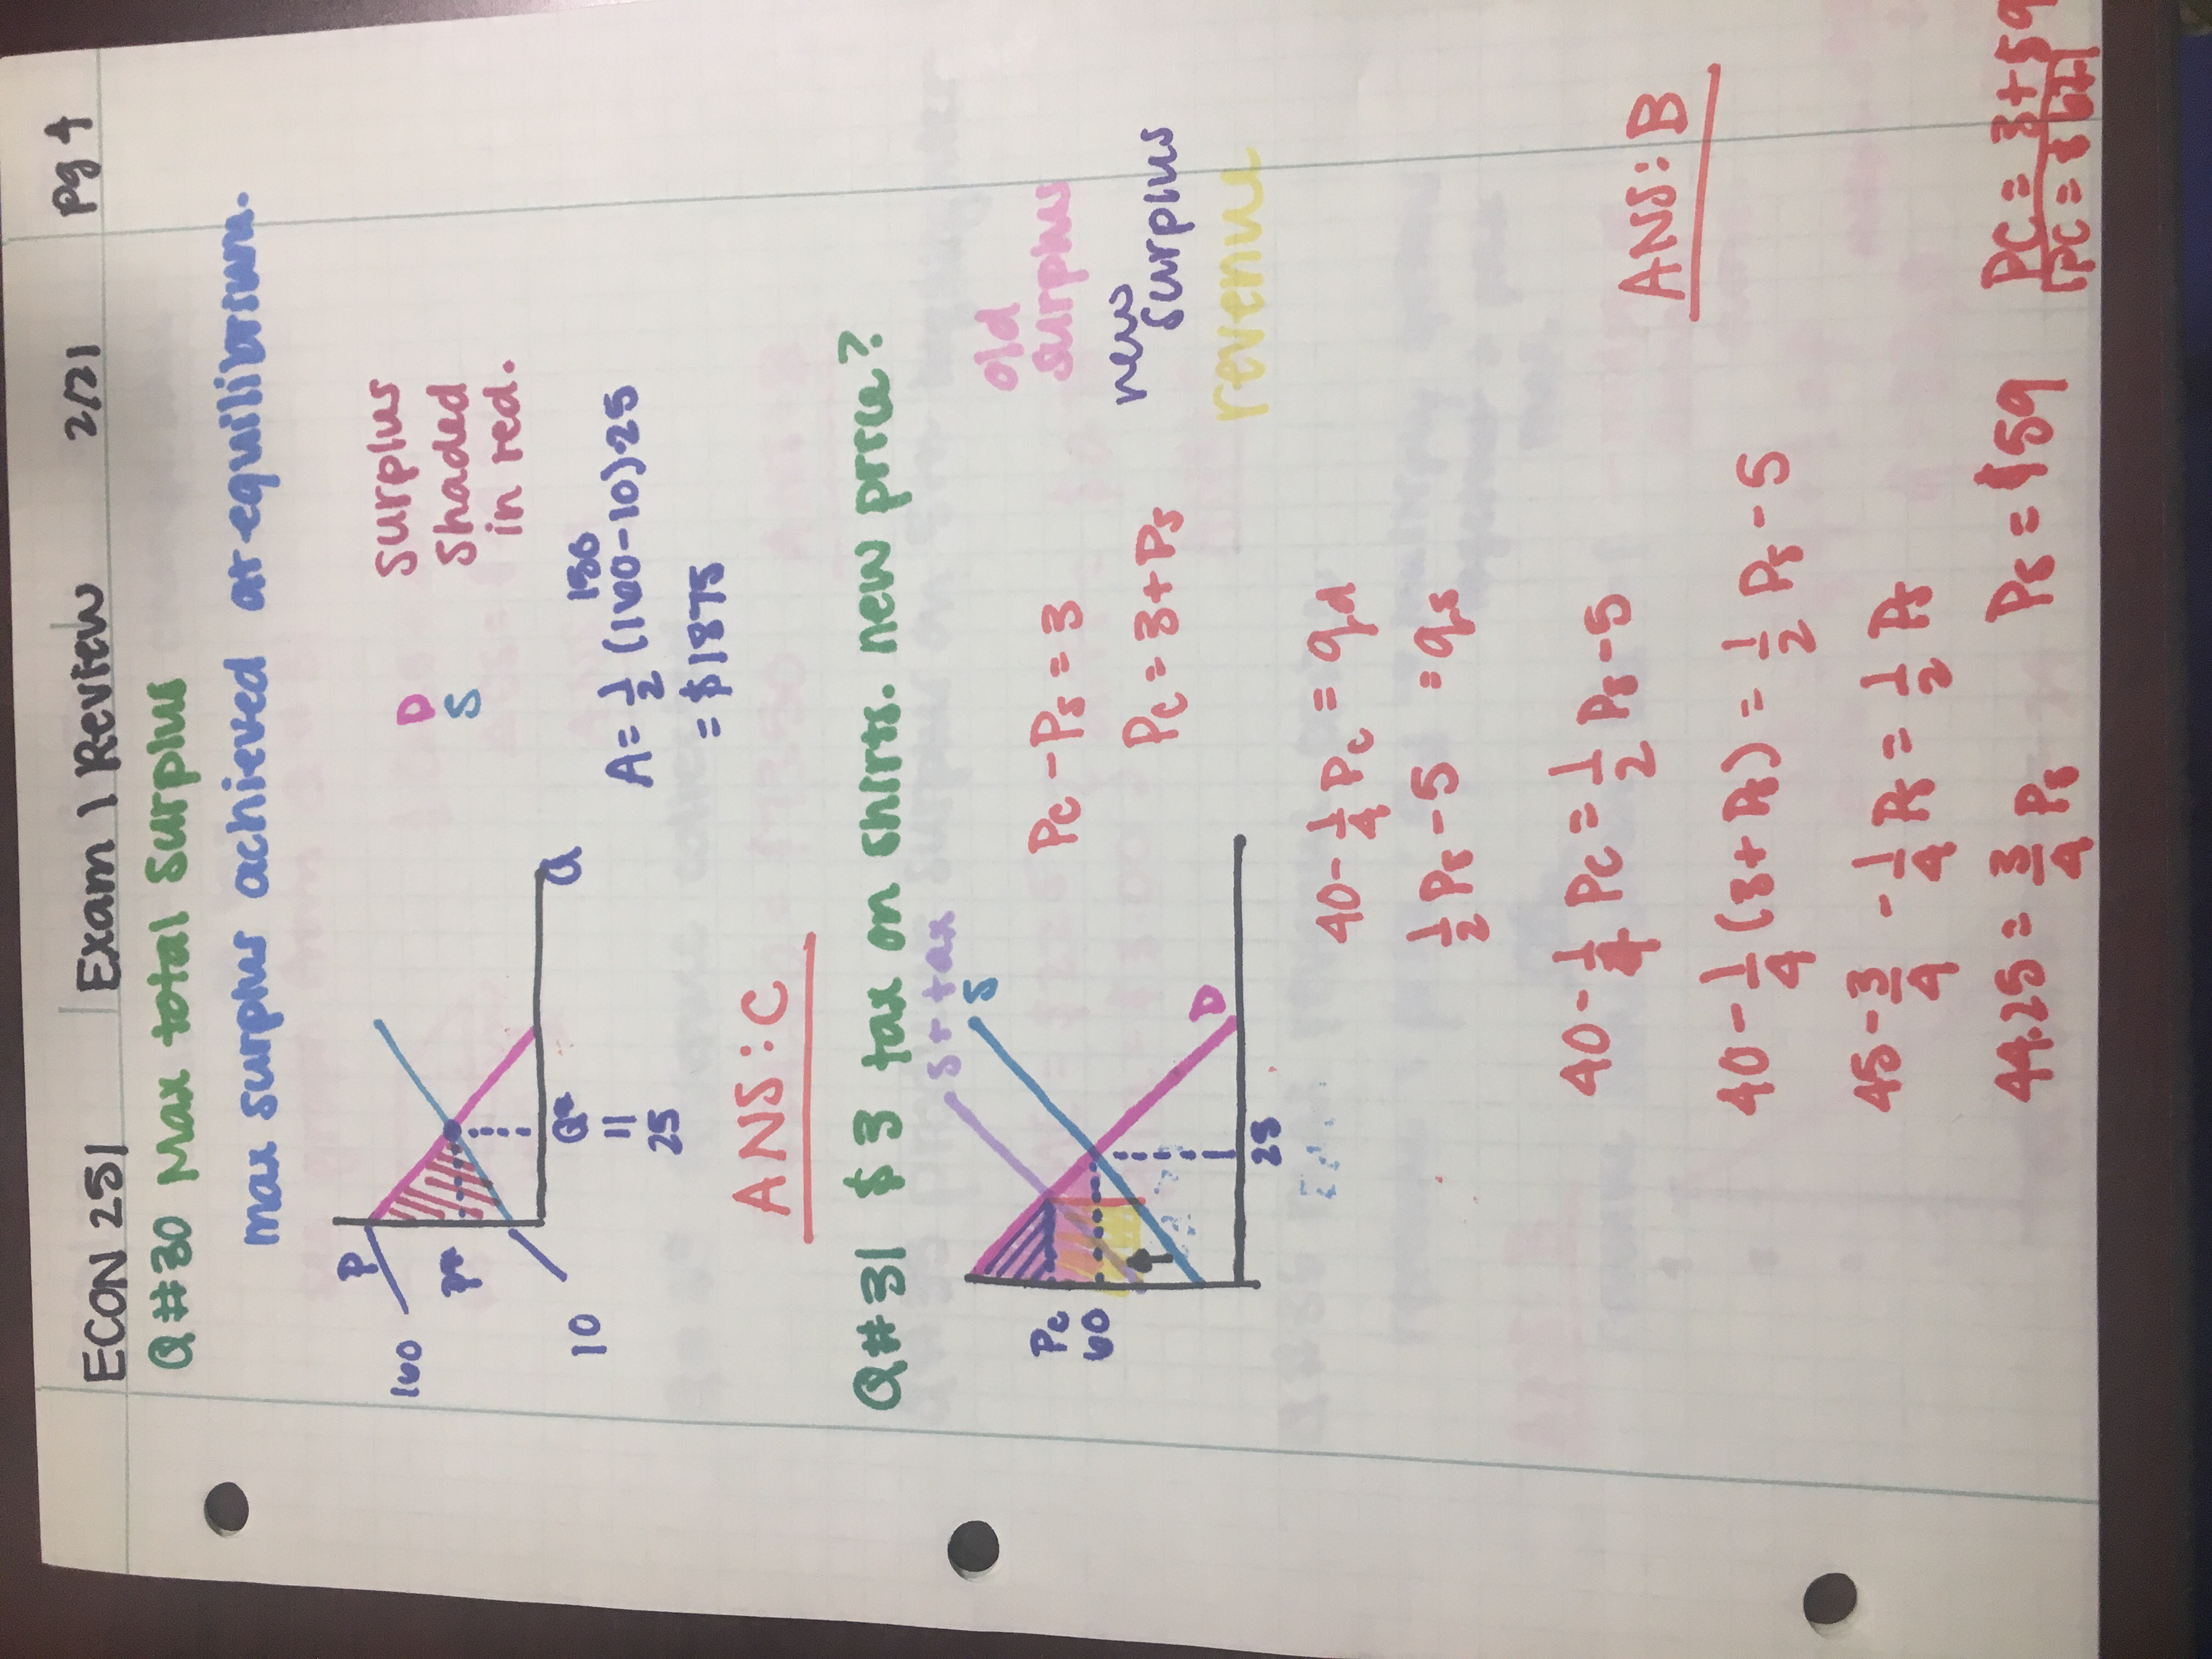 ECON 251 Exam 1 Review 2/21 pg 4
Q#30 Max total Surplus
max surplus achieved at equilibrium.
P
160
P*
10
Q*
||
25
Q
D
S
surplus
shaded
in red.
150
A = 1/2 (160-10)·25
= $1875
ANS: C
Q#31 $3 tax on shirts. new price?
S + tax
S
Pc
60
D
25
Pc - Ps = 3
Pc = 3 + Ps
old
surplus
new
surplus
revenue
40 - 1/4 Pc = qd
1/2 Ps - 5 = qs
40 - 1/4 Pc = 1/2 Ps - 5
ANS: B
40 - 1/4 (3 + Ps) = 1/2 Ps - 5
45 - 3/4 - 1/4 Ps = 1/2 Ps
44.25 = 3/4 Ps Ps = $59 PC = 3 + 59
PC = $62